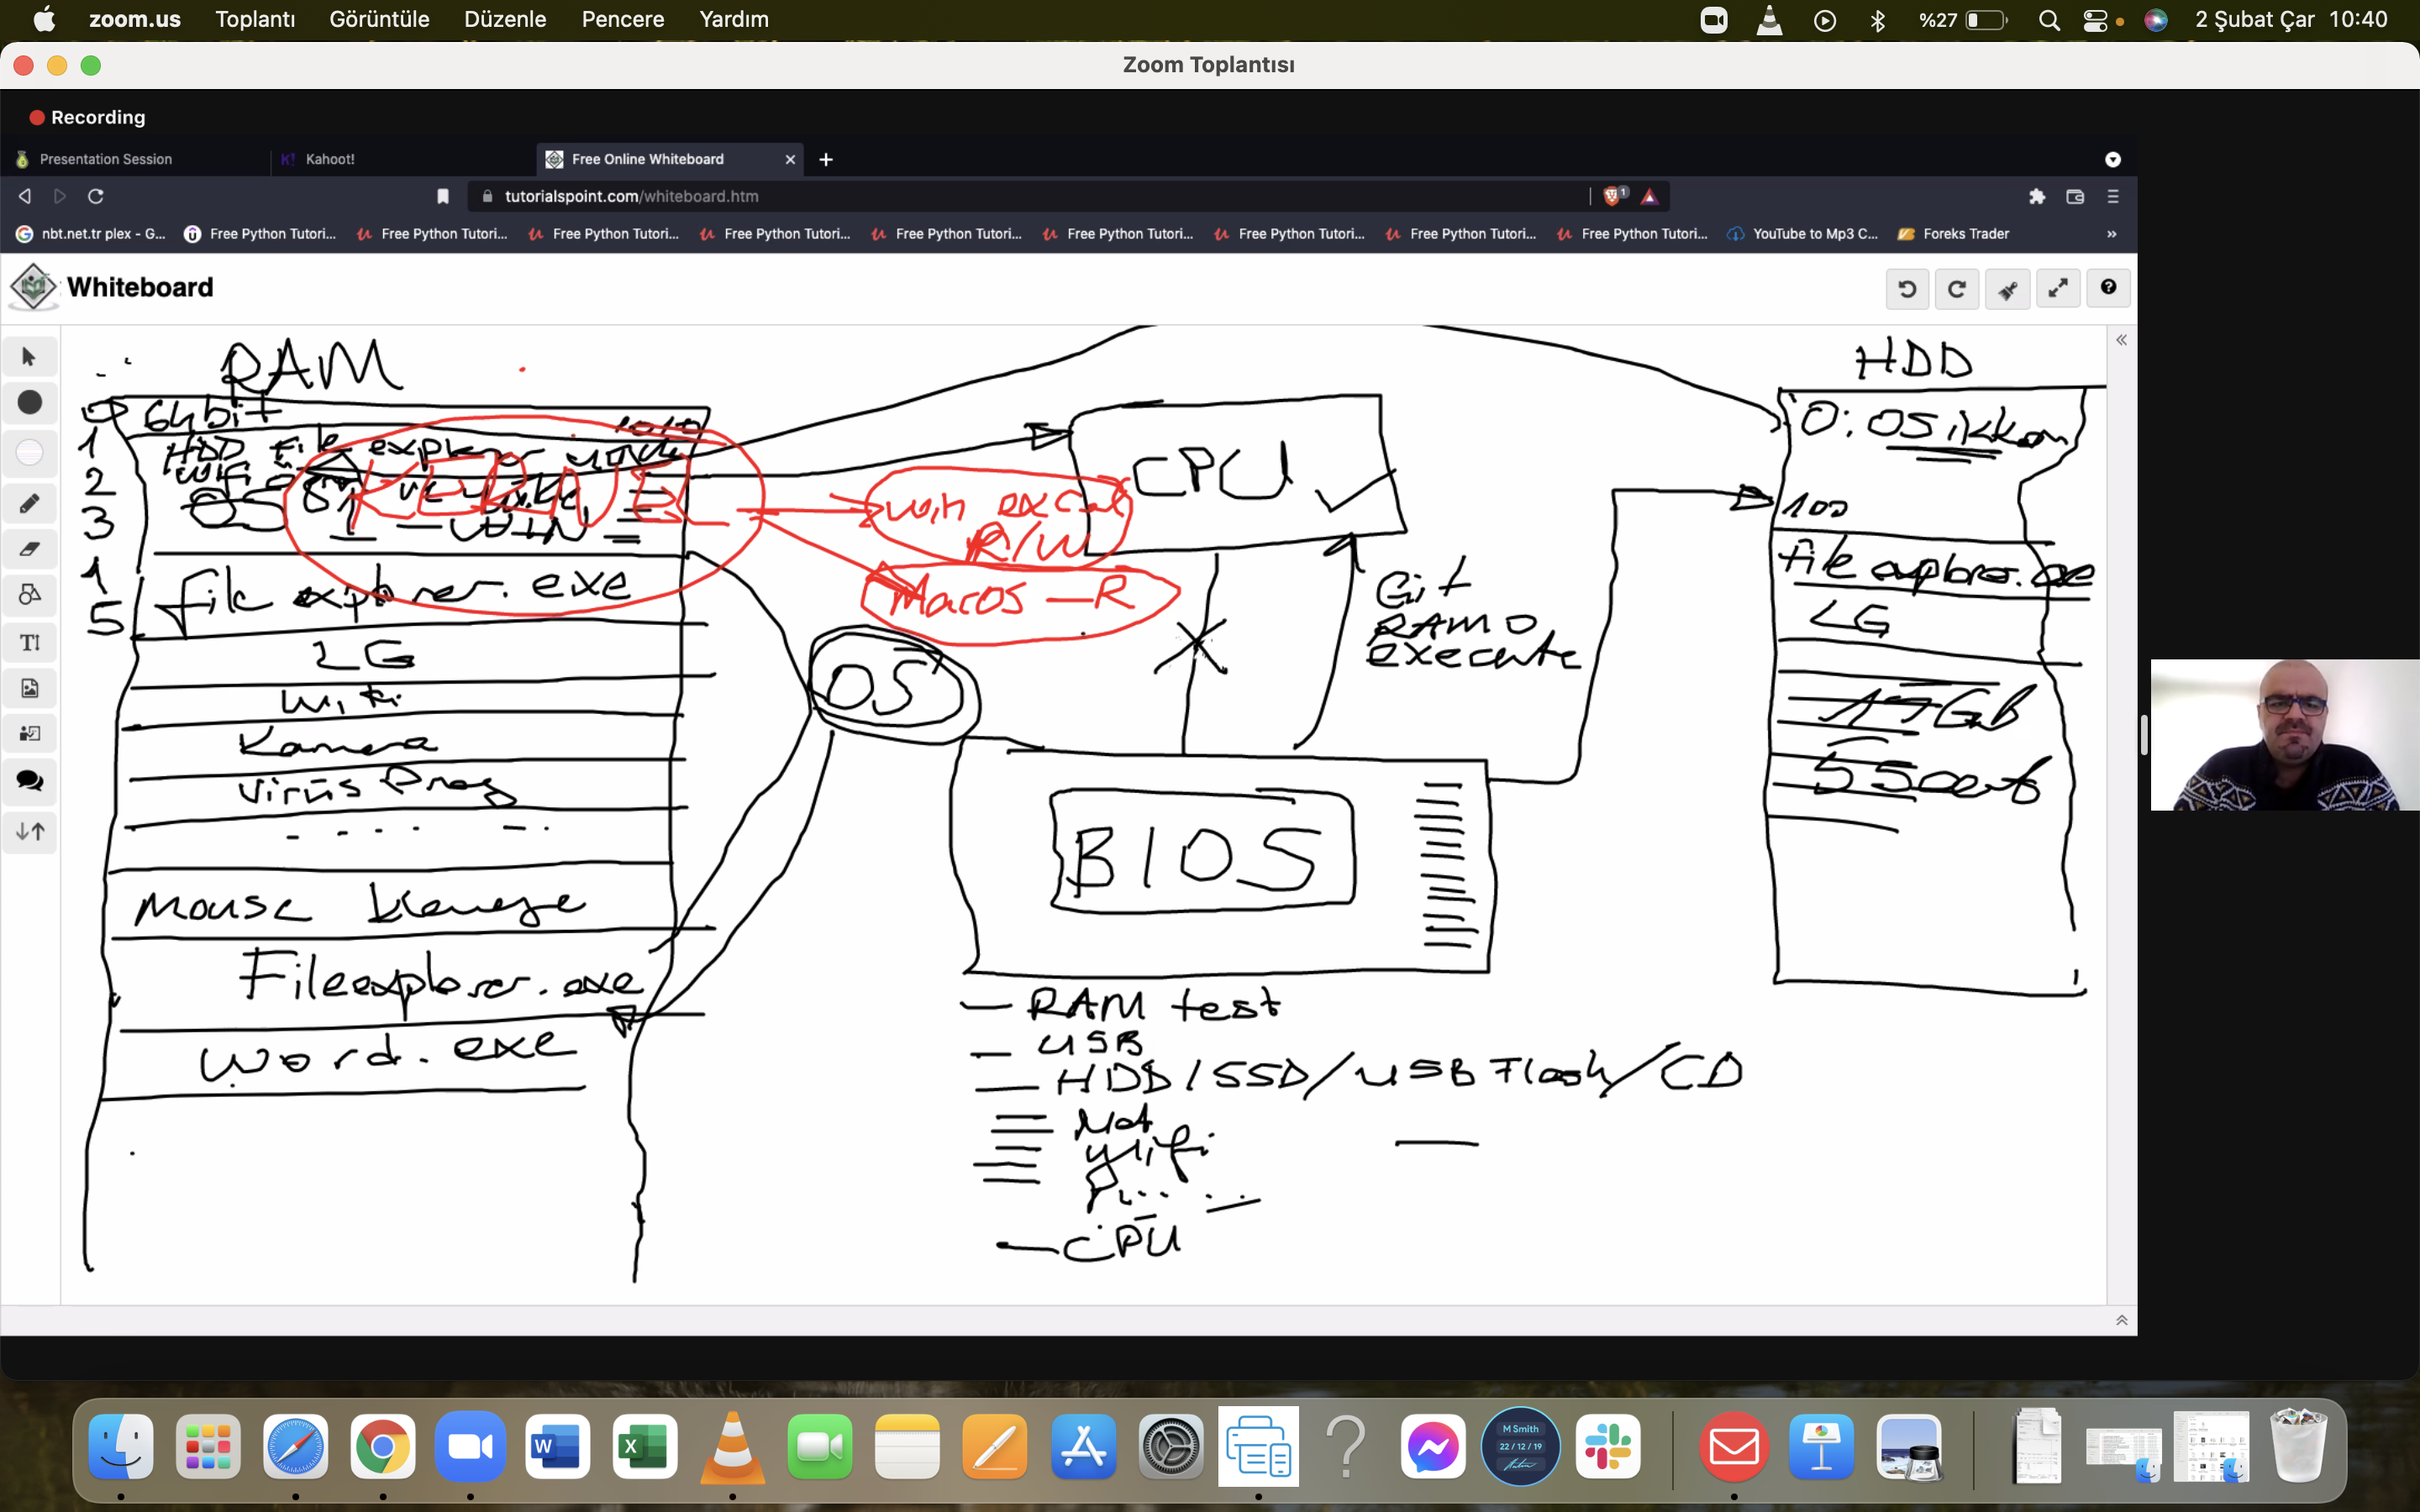 zoom.us Toplantı Görüntüle Düzenle Pencere Yardım %27 2 Şubat Çar 10:40
Zoom Toplantısı
Recording
Presentation Session K! Kahoot! Free Online Whiteboard
tutorialspoint.com/whiteboard.htm 1
nbt.net.tr plex - G... Free Python Tutori... Free Python Tutori... Free Python Tutori... Free Python Tutori... Free Python Tutori... Free Python Tutori... Free Python Tutori... Free Python Tutori... Free Python Tutori... YouTube to Mp3 C... Foreks Trader »
Whiteboard
RAM
0 64bit
1 HDD File explorer
2 Wifi
3 WIN
KERNEL
1
5 file explorer.exe
2G
Wifi
Kamera
Virüs Prog
Mouse
Fileexplorer.exe
Word.exe
CPU
R/W
Macos - R
Git
RAM 0
execute
OS
BIOS
- RAM test
- USB
- HDD / SSD / USB Flash / CD
Net
Wifi
- CPU
HDD
0: OS
100
file explorer.exe
2G
M Smith
22 / 12 / 19